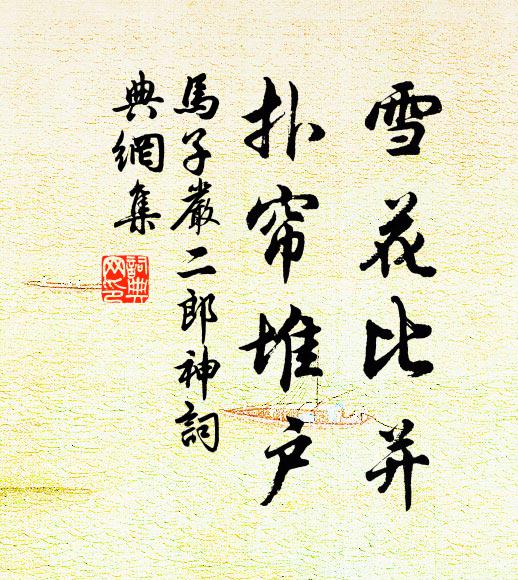 雪花比并
扑帘堆户
馬子嚴二郎神詞
典網集
詞典
网印